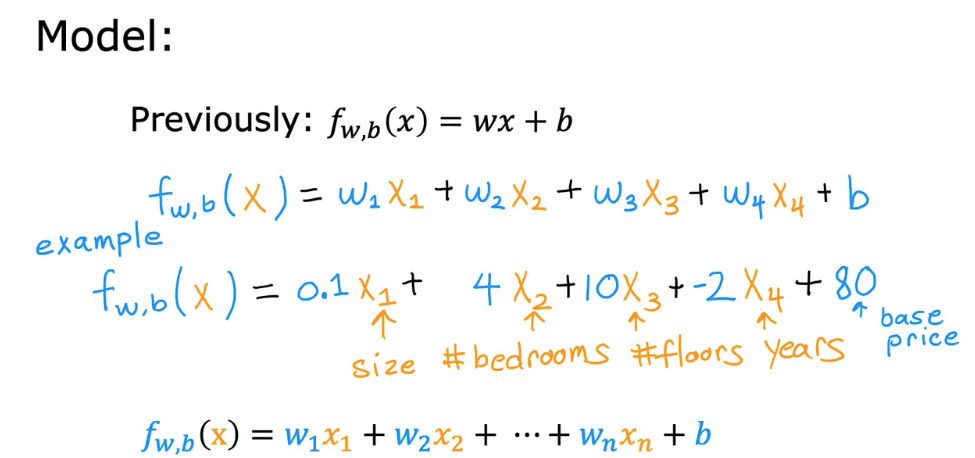 Model:
Previously: f_{w,b}(x) = wx + b
f_{w,b}(x) = w₁x₁ + w₂x₂ + w₃x₃ + w₄x₄ + b
example
f_{w,b}(x) = 0.1x₁ + 4x₂ + 10x₃ + -2x₄ + 80
↑ ↑ ↑ ↑ ↑ base price
size #bedrooms #floors years
f_{w,b}(x) = w₁x₁ + w₂x₂ + ⋯ + wₙxₙ + b